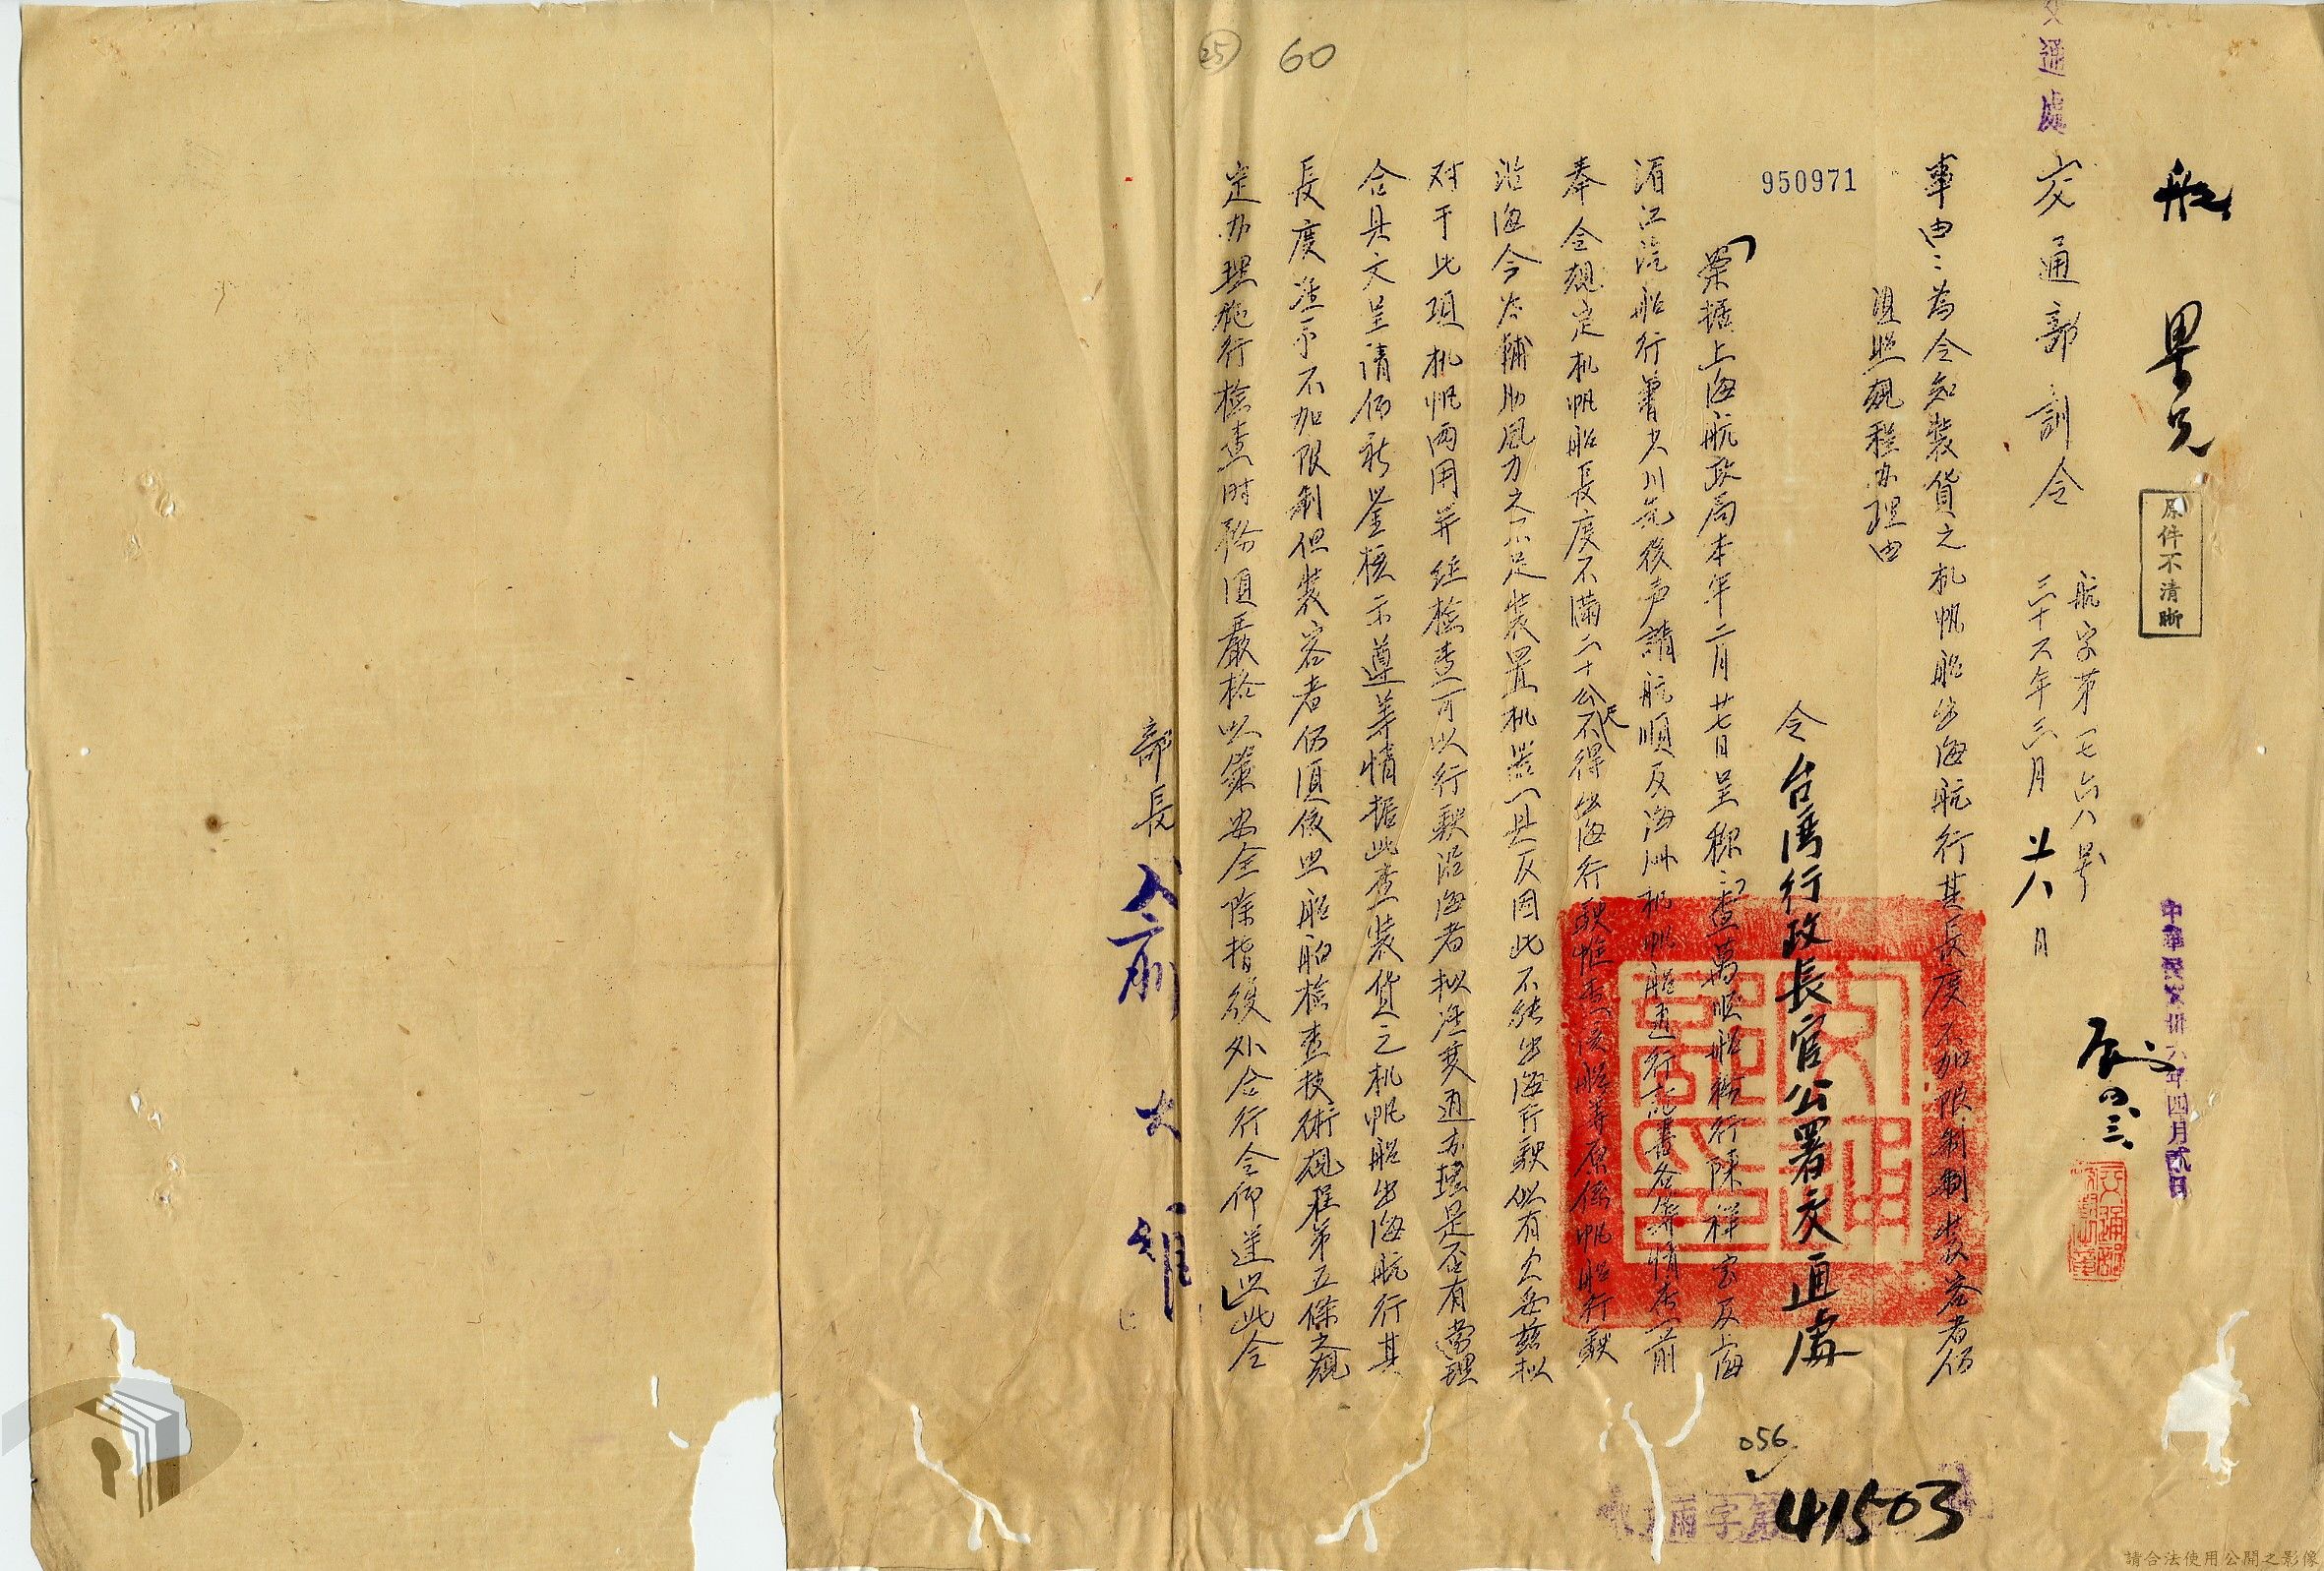 25
60
交通處
船
交通部訓令
原件不清晰
航字第一七六八號
三十六年三月廿八日
中華民國卅六年四月貳日
四、三、
事由：為令知裝貨之机帆船出海航行其長度不加限制裝客者仍
須照規程办理由
950971
令台灣行政長官公署交通處
案據上海航政局本年二月廿七日呈称：「查萬順船務行陳祥宝及上海
湄江汽船行曾少川先後声請航順及海洲机帆船進行註書各等情查前
奉令規定机帆船長度不滿二十公尺不得出海行駛惟查該船等原係帆船行駛
沿海今為輔助風力之不足裝置机器一具反因此不能出海行駛似有欠妥茲拟
对于此項机帆两用并经檢查可以行駛沿海者拟准其通办理是否有當理
合具文呈請仰祈鑒核示遵等情據此查裝貨之机帆船出海航行其
長度准示不加限制但裝客者仍須依照船舶檢查技術規程第五條之規
定办理施行檢查時務須嚴格以策安全除指復外合行令仰遵照此令
部長俞大維
056
41503
請合法使用公開之影像